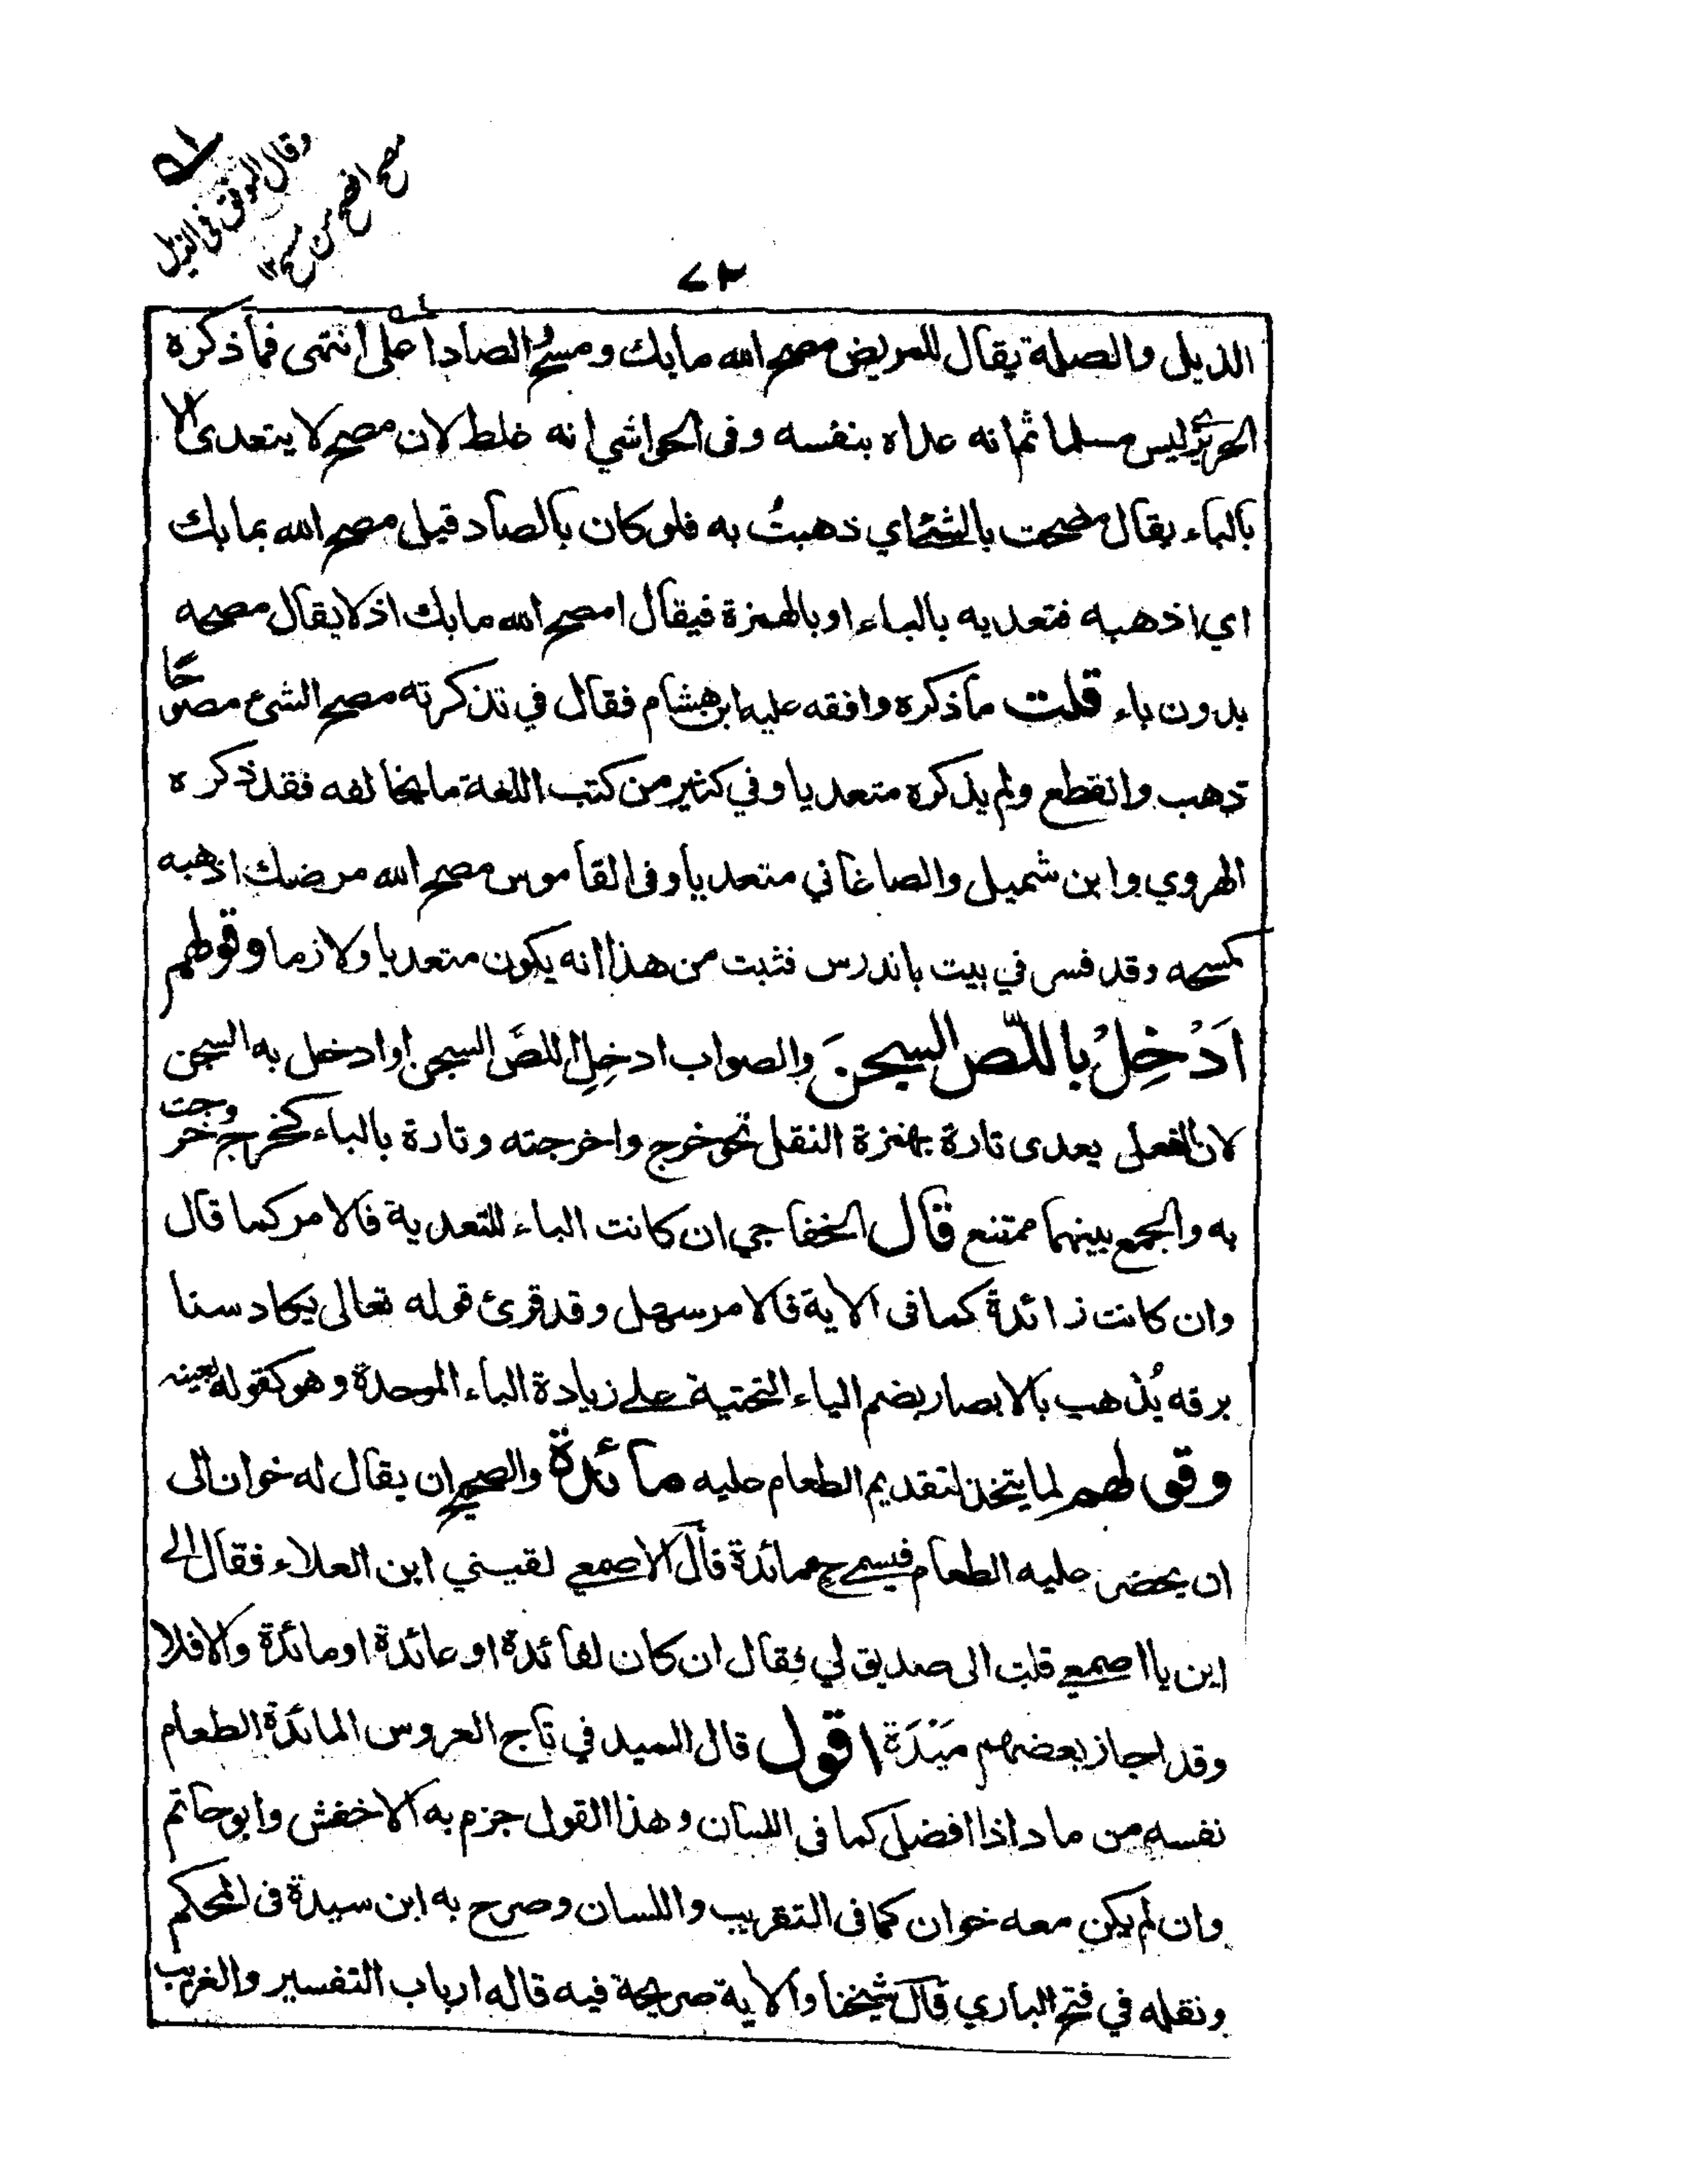 وقال الموفق فى الذيل
مصح افصح من مسح ١٢
٧٢
الذيل والصلة يقال للمريض مصح الله مابك ومسح والصاد اعلى انتهى فما ذكره
الحريرى ليس مسلما ثم انه عداه بنفسه وفى الحواشي انه غلط لان مصح لا يتعدى الا
بالباء يقال مصحت بالشئ اي ذهبتُ به فلو كان بالصاد قيل مصح الله بما بك
اي اذهبه فتعديه بالباء او بالهمزة فيقال امصح الله مابك اذ لا يقال مصحه
بدون باء قلت ما ذكره وافقه عليه ابن هشام فقال في تذكرته مصح الشئ مصوحًا
ذهب وانقطع ولم يذكره متعديا وفي كثير من كتب اللغة ما يخالفه فقد ذكره
الهروي وابن شميل والصاغاني متعديا وفى القاموس مصح الله مرضك اذهبه
كمسحه وقد فسر في بيت باندرس فثبت من هذا انه يكون متعديا ولازما وقولهم
اَدْخِلْ باللّص السجنَ والصواب ادخِلِ اللصَّ السجن او ادخل به السجن
لان الفعل يعدى تارة بهمزة النقل نحو خرج واخرجته وتارة بالباء كخرج وخرجت
به والجمع بينهما ممتنع قال الخفاجي ان كانت الباء للتعدية فالامر كما قال
وان كانت زائدة كما فى الاية فالامر سهل وقد قرئ قوله تعالى يكاد سنا
برقه يُذهب بالابصار بضم الياء التحتية على زيادة الباء الموحدة وهو كقوله بعينه
وقولهم لما يتخذ لتقديم الطعام عليه مائدة والصحيح ان يقال له خوان الى
ان يحضر عليه الطعام فيسمى ح مائدة قال الاصمعي لقيني ابن العلاء فقال الى
اين يا اصمعي قلت الى صديق لي فقال ان كان لفائدة او عائدة او مائدة والا فلا
وقد اجاز بعضهم مَيْدَة اقول قال السيد في تاج العروس المائدة الطعام
نفسه من ماد اذا افضل كما فى اللسان وهذا القول جزم به الاخفش وابو حاتم
وان لم يكن معه خوان كما فى التقريب واللسان وصرح به ابن سيدة فى المحكم
ونقله في فتح الباري قال شيخنا والاية صريحة فيه قاله ارباب التفسير والغريب